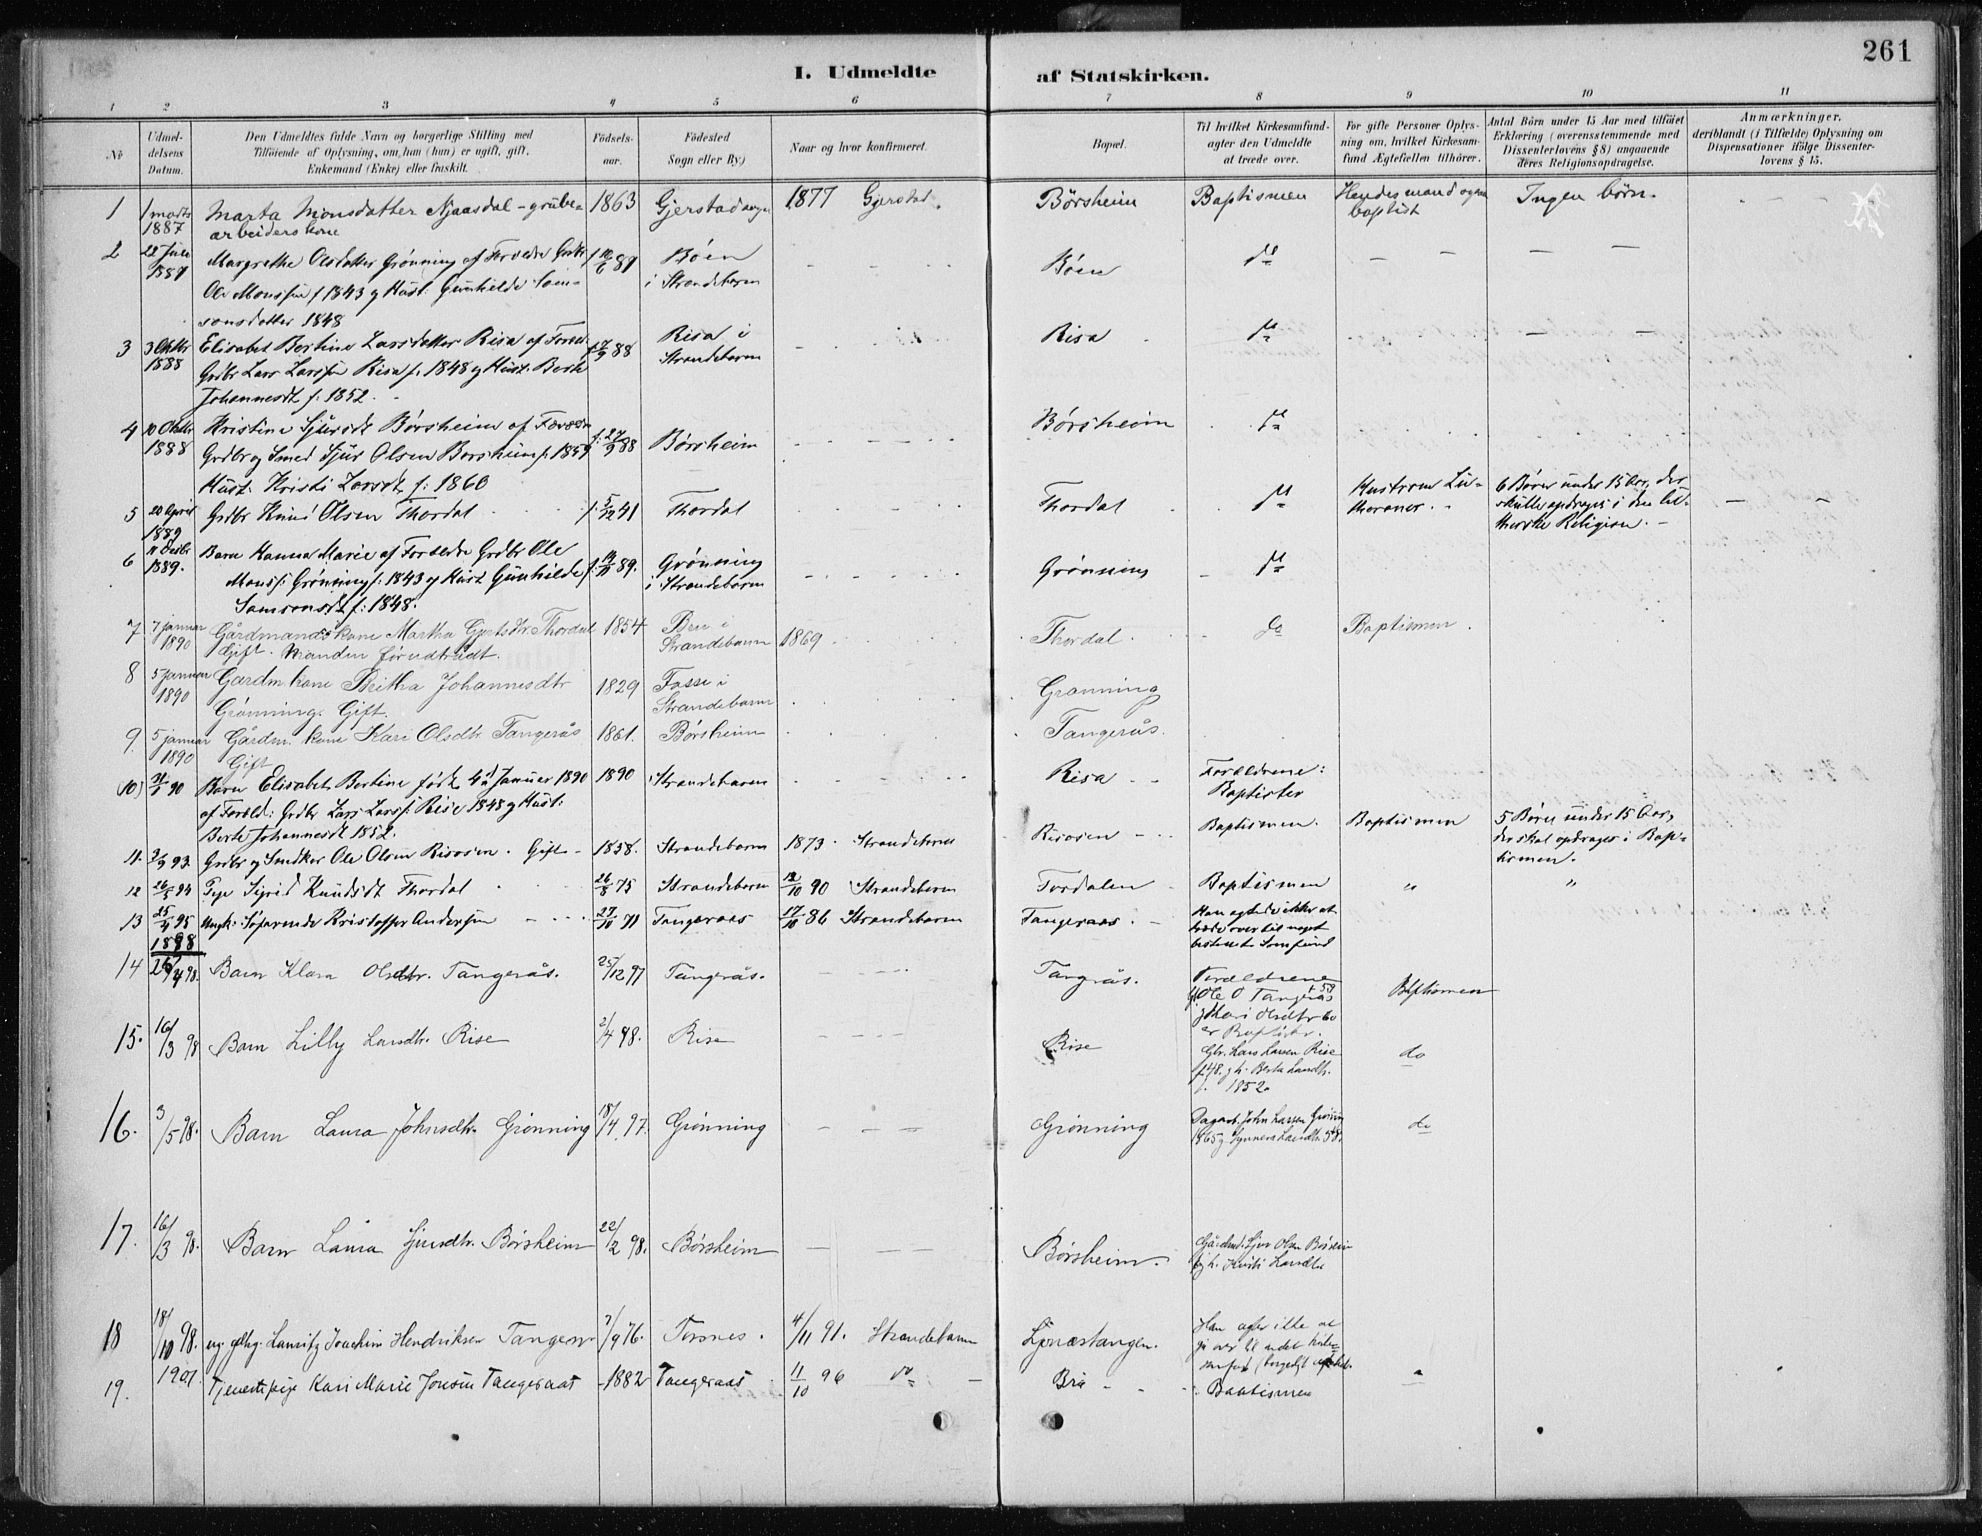 261
I. Udmeldte af Statskirken.
1 2 3 4 5 6 7 8 9 10 11
No
Udmeldelsens Datum.
Den Udmeldtes fulde Navn og borgerlige Stilling med
Tilföiende af Oplysning, om han (hun) er ugift, gift,
Enkemand (Enke) eller fraskilt.
Födselsaar.
Födested
(Sogn eller By.)
Naar og hvor konfirmeret.
Bopæl.
Til hvilket Kirkesamfund
agter den Udmeldte
at træde over.
For gifte Personer Oplysning
om, hvilket Kirkesamfund
Ægtefællen tilhörer.
Antal Börn under 15 Aar med tilföiet
Erklæring (overensstemmende med
Dissenterlovens § 8) angaaende
deres Religionsopdragelse.
Anmærkninger,
deriblandt (i Tilfælde) Oplysning om
Dispensationer ifölge Dissenterlovens § 15.
1 1 marts 1887 Marta Monsdatter Njaasdal - grubearbeiderskone 1863 Gjerstad 1877 Gjerstad. Børsheim Baptismen Hendes mand ogsaa baptist Ingen børn.
2 22 Juli 1887 Margrethe Olsdatter Grønning af Forældre Grdbr
Ole Monssen f 1843 og Hust: Gunhilde Samsonsdatter 1848 f 10/6 87 Bøen i Strandebarm Bøen do
3 3 Oktbr 1888 Elisabet Bertine Larsdatter Risa af Foræld.
Grdbr Lars Larssen Risa f. 1848 og Hust: Berte
Johannesdt f: 1852. f 17/9 88 Risa i Strandebarm Risa do
4 10 Oktbr 1888 Kristine Sjursdt Børsheim af Forældre
Grdbr og Smed Sjur Olsen Børsheim f. 1859
Hust: Kristi Larsdt f: 1860 f: 27/9 88 Børsheim Børsheim do
5 20 April 1889 Grdbr Knud Olsen Thordal f. 5/12 41 Thordal Thordal do Hustruen Lutheraner. 6 Børn under 15 Aar, der
skulle opdrages i den lutherske Religion.
6 11 Decbr 1889. Barn Hanna Marie af Forældre Grdbr Ole
Monss: Grønning f: 1843 og Hust Gunhilde
Samsonsdt f: 1848. f: 14/10 89. Grønning i Strandebarm Grønning do
7 7 januar 1890 Gårdmandskone Martha Gjertsdtr. Thordal
Gift. Manden før udtrådt. 1854 Bru i Strandebarm 1869 Thordal. do Baptismen.
8 5 januar 1890 Gardm kone Britha Johannesdtr
Grønning. Gift. 1829 Fosse i Strandebarm Grønning
9. 5 januar 1890 Gårdm. kone Kari Olsdtr. Tangerås
Gift 1861. Børsheim Tangerås.
(10) 31/1 90 Barn Elisabet Bertine født 4de Januar 1890
af Foræld: Grdbr Lars Larss: Rise 1848 og Hust:
Berte Johannesdt 1852. 1890 Strandebarm Risa Forældrene: Baptister
11. 3/9 93. Grdbr og Snedker Ole Olsen Risosen. Gift 1858. Strandebarm 1873. Strandebarm Risosen Baptismen. Baptismen 5 Børn under 15 Aar,
der skal opdrages i Baptismen.
12 26/5 94 Pige Sigrid Knudsdt Thordal 26/8 75 Strandebarm 12/10 90 Strandebarm Tordalen Baptismen " "
13 25/4 95 Ungk. Søfarende Kristoffer Andersen 27/10 71 Tangeraas 17/10 86 Strandebarm Tangeraas. Han agtede ikke at
træde over til noget
bestemt Samfund
1898
14 26/4 98. Barn Klara Olsdtr. Tangerås. 25/12 97 Tangerås. Tangrås. Forældrene
Ole O Tangerås
og Kari Olsdtr 60
er Baptister. Baptismen
15. 16/3 98 Barn Lilly Larsdtr. Rise 2/4 98. Rise Rise Gbr. Lars Larsen Rise
f. 48. og h. Berta
1852. do
16. 3/5 98. Barn Laura Johnsdtr. Grønning 18/4 97. Grønning Grønning John Larsen Grønning
1865 og Synneva Larsdtr. 58. do
17. 16/3 98. Barn Laura Sjursdtr. Børsheim 22/2 98. Børsheim Børsheim. Gårdmd. Sjur Olsen Børsheim
og h. Kristi Larsdtr
18 18/10 98. ug. Lauritz Joachim Hendriksen Tangen 7/9 76. Torsnes. 4/11 91. Strandebarm Ljonæstangen. Han agter ikke at
gå over til andet Kirkesamfund
19. 1901. Tjenestepige Kari Marie Jonsen Tangeraas 1882 Tangeraas 11/10 96 do Bru Baptismen